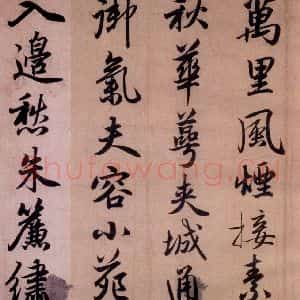 萬里風煙接素
秋華萼夾城通
御氣夫容小苑
入邊愁朱簾繡
shufawang.cn